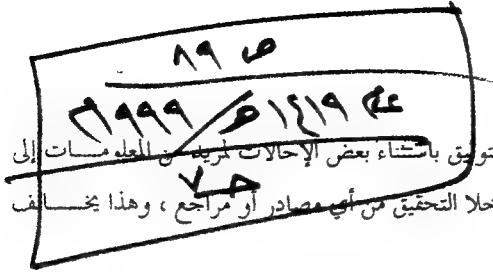 ص ٨٩
عام ١٤١٩ه‍/١٩٩٩م
توثيق باستثناء بعض الإحالات لمزيد من المعلومات إلى
حـ٧
خلا التحقيق من أي مصادر أو مراجع ، وهذا يخالف